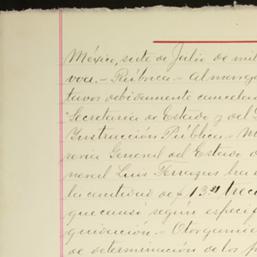 México, siete de Julio de mil
voa.- Rúbrica.- Al margen
tavos debidamente cancelad
"Secretaría de Estado y del
Instrucción Pública.- M
ría General del Estado
neral Luis Terrazas ha
la cantidad de $13.
que causó según especif
quidación.- Otorgamie
de determinación de los